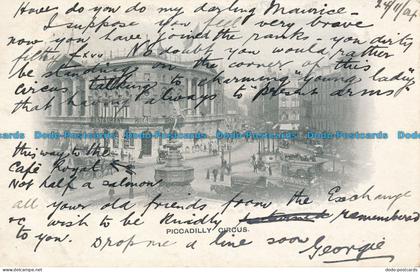 How do you do my darling Maurice. - 29/11/01
I suppose you feel very brave
now you have joined the ranks - you dirty
filthy No doubt you would rather
be standing on the corner of this
circus talking to a charming "young lady"
than having to present arms
this way to the
Café Royal
Not half a salmon
all your old friends from the Exchange
wish to be kindly remembered
to you. Drop me a line soon
Georgie
PICCADILLY CIRCUS.
Bob-Postcards